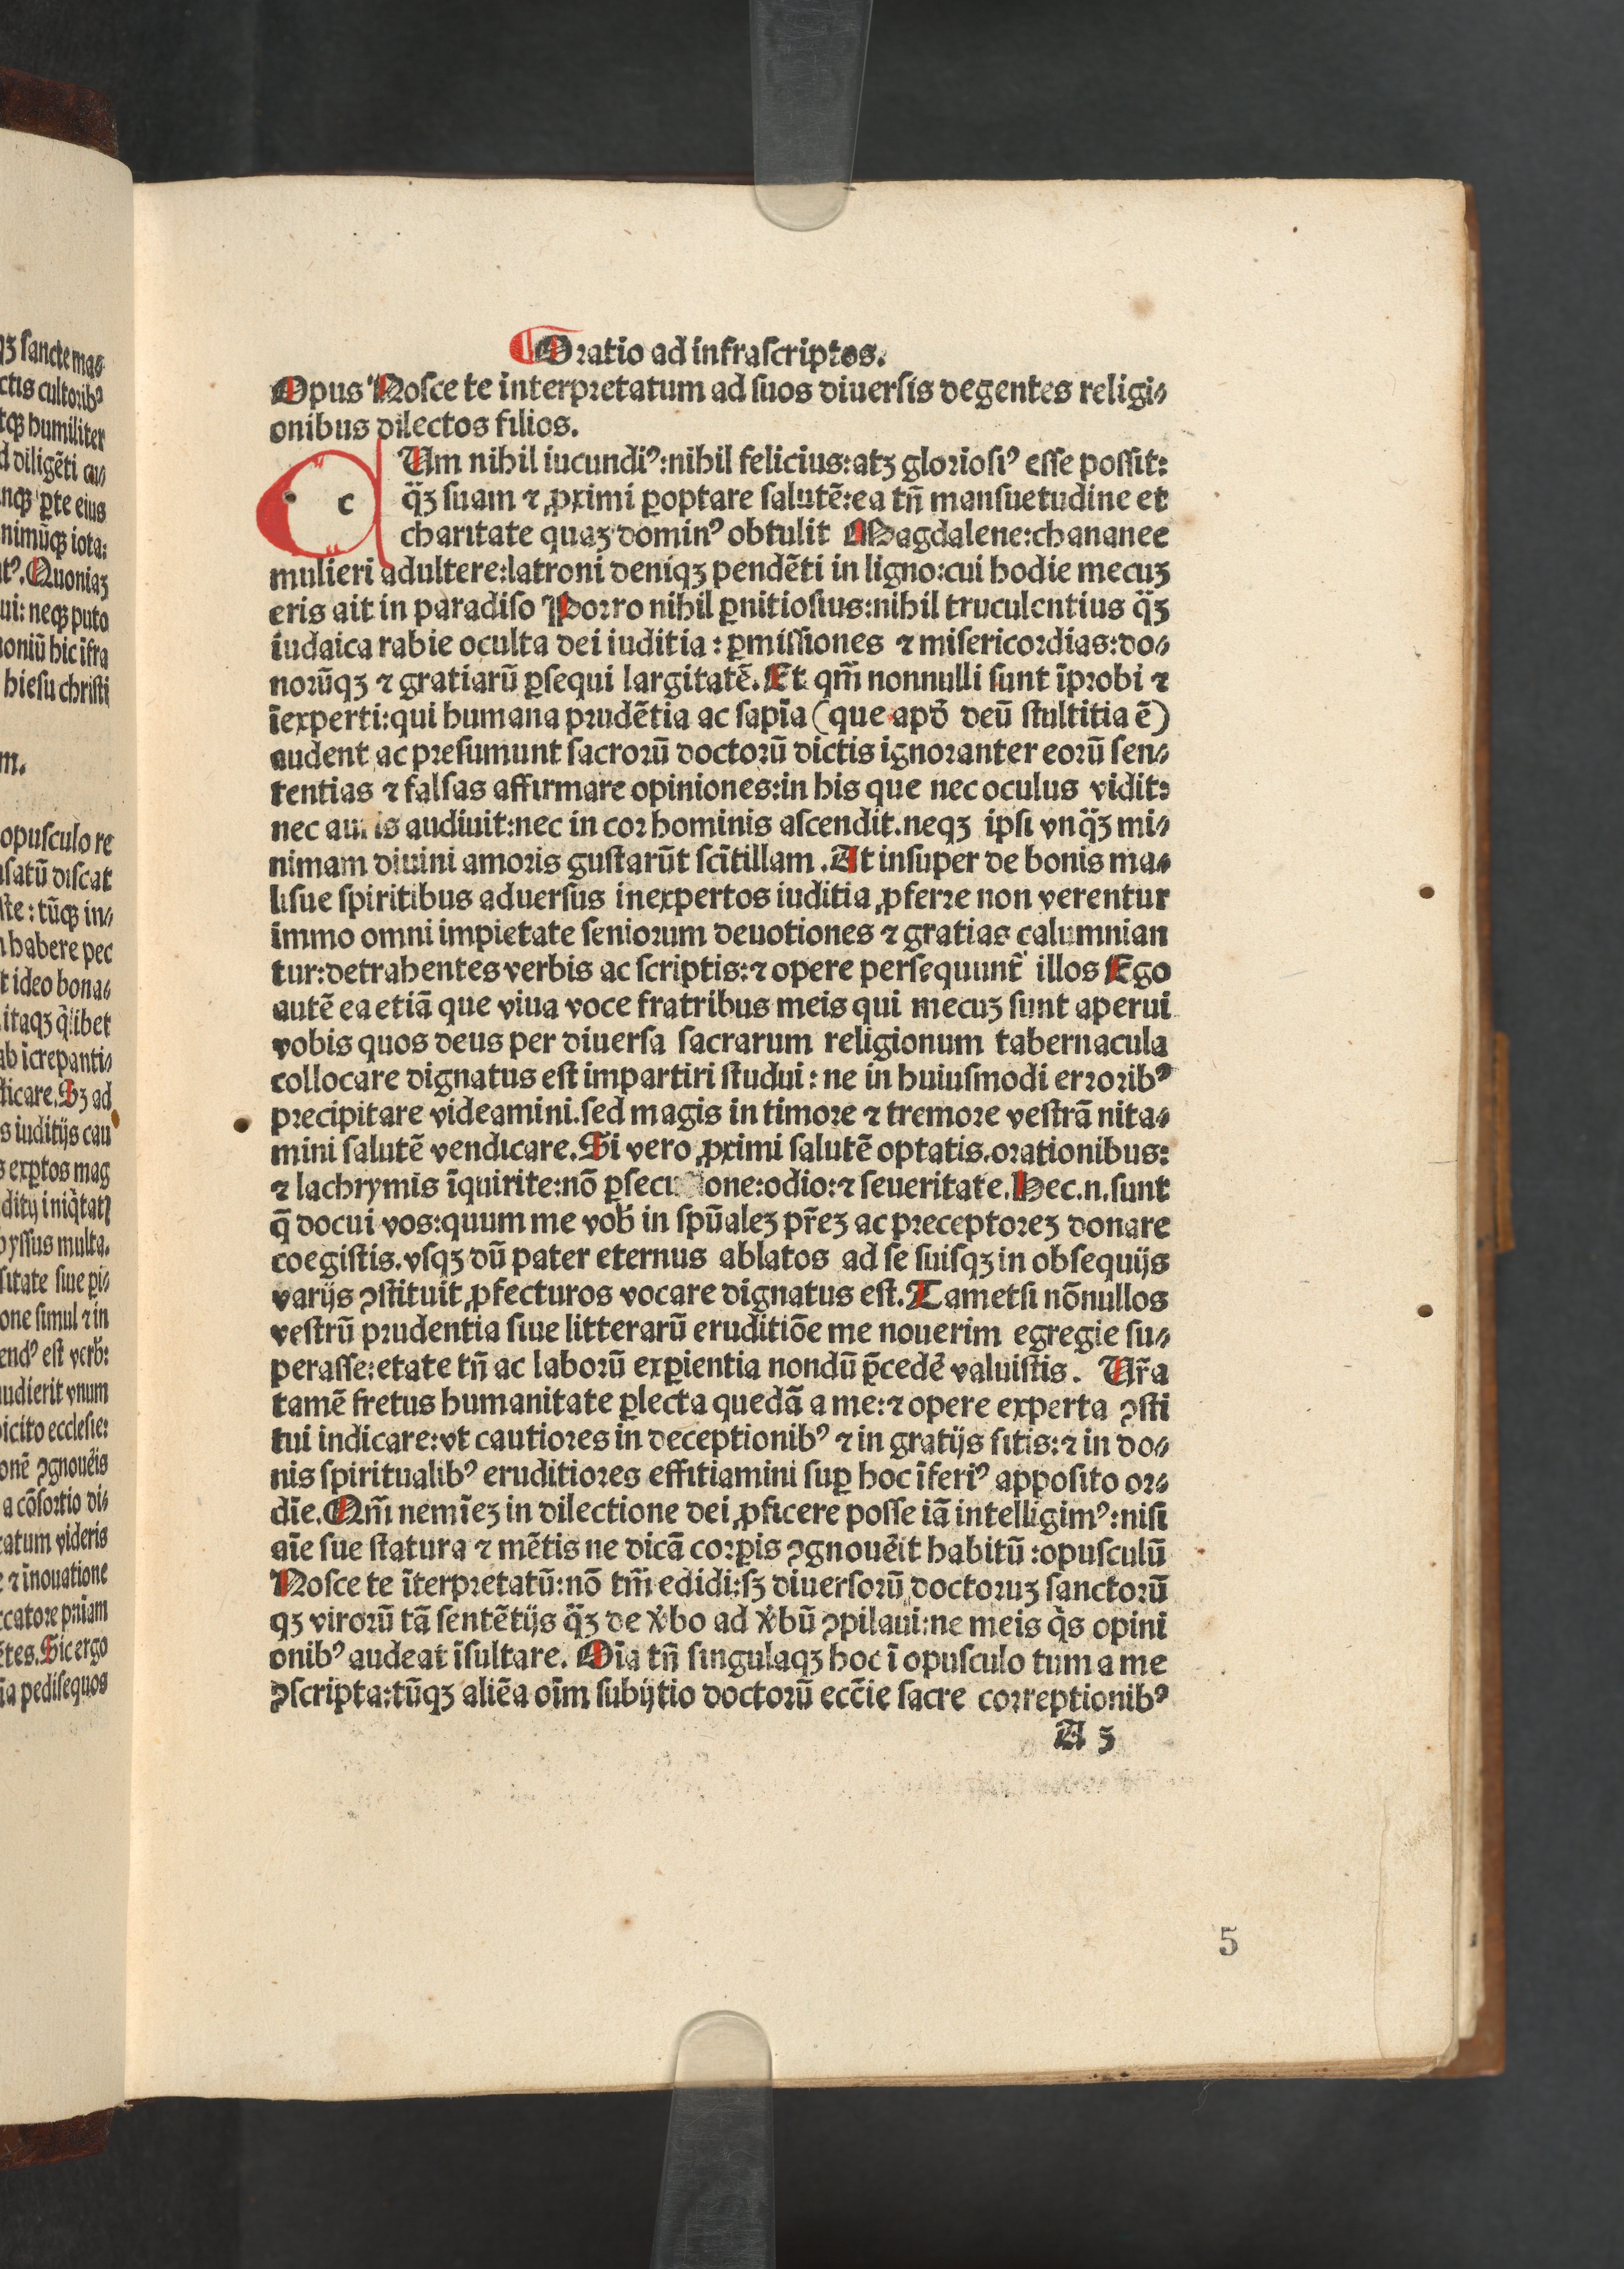 Oratio ad infraſcriptos.
Opus Noſce te interpretatum ad ſuos diuerſis degentes religi⸗
onibus dilectos filios.
c Um nihil iucundiꝰ:nihil felicius:atꝫ glorioſiꝰ eſſe poſſit:
q̈ꝫ ſuam ⁊ ꝓximi ꝑoptare ſalutē:ea tn̄ manſuetudine et
charitate quaꝫ dominꝰ obtulit Magdalene:chananee
mulieri adultere:latroni deniqꝫ pendēti in ligno:cui hodie mecuꝫ
eris ait in paradiſo Porro nihil ꝑnitioſius:nihil truculentius q̈ꝫ
iudaica rabie oculta dei iuditia: ꝑmiſſiones ⁊ miſericordias:do⸗
norūqꝫ ⁊ gratiarū ꝑſequi largitatē. Et qm̄ nonnulli ſunt īprobi ⁊
īexperti:qui humana prudētia ac ſapīa (que apd̓ deū ſtultitia ē)
audent ac preſumunt ſacrorū doctorū dictis ignoranter eorū ſen⸗
tentias ⁊ falſas affirmare opiniones:in his que nec oculus vidit:
nec auris audiuit:nec in cor hominis aſcendit.neqꝫ ipſi vnq̈ꝫ mi⸗
nimam diuini amoris guſtarūt ſcītillam. At inſuper de bonis ma⸗
liſue ſpiritibus aduerſus inexpertos iuditia ꝓferre non verentur
immo omni impietate ſeniorum deuotiones ⁊ gratias calumnian
tur:detrahentes verbis ac ſcriptis:⁊ opere perſequunt̄ illos Ego
autē ea etiā que viua voce fratribus meis qui mecuꝫ ſunt aperui
vobis quos deus per diuerſa ſacrarum religionum tabernacula
collocare dignatus eſt impartiri ſtudui: ne in huiuſmodi erroribꝰ
precipitare videamini.ſed magis in timore ⁊ tremore veſtrā nita⸗
mini ſalutē vendicare. Si vero ꝓximi ſalutē optatis.orationibus:
⁊ lachrymis īquirite:nō ꝑſecutione:odio:⁊ ſeueritate. Hec.n.ſunt
q̄ docui vos:quum me vob̓ in ſpūaleꝫ pr̄eꝫ ac preceptoreꝫ donare
coegiſtis.vſqꝫ dū pater eternus ablatos ad ſe ſuiſqꝫ in obſequijs
varijs ꝯſtituit ꝓfecturos vocare dignatus eſt. Tametſi nōnullos
veſtrū prudentia ſiue litterarū eruditiōe me nouerim egregie ſu⸗
peraſſe:etate tn̄ ac laborū exꝑientia nondū p̄cedē valuiſtis. Ur̄a
tamē fretus humanitate ꝑlecta quedā a me:⁊ opere experta ꝯſti
tui indicare:vt cautiores in deceptionibꝰ ⁊ in gratijs ſitis:⁊ in do⸗
nis ſpiritualibꝰ eruditiores effitiamini ſuꝑ hoc īferiꝰ appoſito or⸗
dīe. Qm̄ nemīeꝫ in dilectione dei ꝓficere poſſe iā intelligimꝰ:niſi
aīe ſue ſtatura ⁊ mētis ne dicā corꝑis ꝯgnouēit habitū :opuſculū
Noſce te īterpretatū:nō tm̄ edidi:ſꝫ diuerſorū doctoruꝫ ſanctorū
qꝫ virorū tā ſentētijs q̈ꝫ de v̓bo ad v̓bū ꝯpilaui:ne meis q̇s opini
onibꝰ audeat īſultare. Oīa tn̄ ſingulaqꝫ hoc ī opuſculo tum a me
ꝯſcripta:tūqꝫ aliēa oīm ſubijtio doctorū ecc̄ie ſacre correptionibꝰ
A 3
5